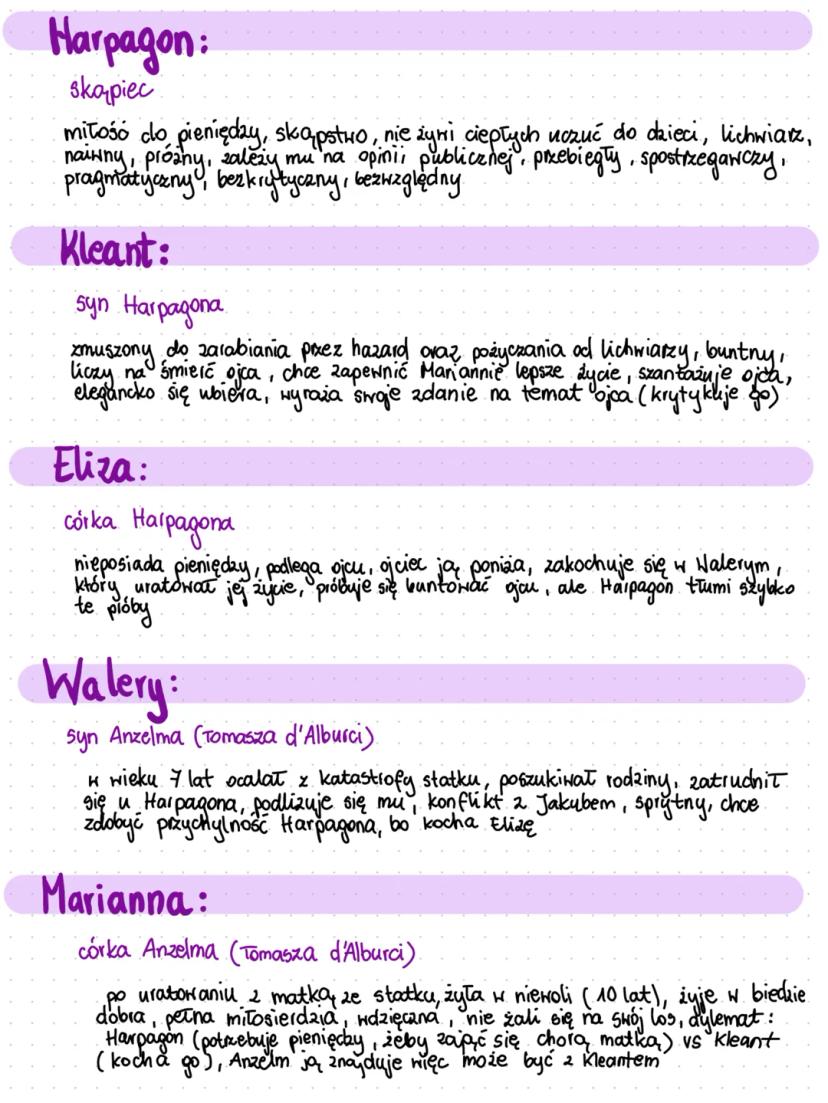 Harpagon:
skąpiec
miłość do pieniędzy, skąpstwo, nie żywi ciepłych uczuć do dzieci, lichwiarz,
naiwny, próżny, zależy mu na opinii publicznej, przebiegły, spostrzegawczy,
pragmatyczny, bezkrytyczny, bezwzględny
Kleant:
syn Harpagona
zmuszony do zarabiania przez hazard oraz pożyczania od lichwiarzy, buntny,
liczy na śmierć ojca, chce zapewnić Mariannie lepsze życie, szantażuje ojca,
elegancko się ubiera, wyraża swoje zdanie na temat ojca (krytykuje go)
Eliza:
córka Harpagona
nieposiada pieniędzy, podlega ojcu, ojciec ją poniża, zakochuje się w Walerym,
który uratował jej życie, próbuje się buntować ojcu, ale Harpagon tłumi szybko
te próby
Walery:
syn Anzelma (Tomasza d'Alburci)
w wieku 7 lat ocalał z katastrofy statku, poszukiwał rodziny, zatrudnił
się u Harpagona, podlizuje się mu, konflikt z Jakubem, sprytny, chce
zdobyć przychylność Harpagona, bo kocha Elizę
Marianna:
córka Anzelma (Tomasza d'Alburci)
po uratowaniu z matką ze statku, żyła w niewoli (10 lat), żyje w biedzie
dobra, pełna miłosierdzia, wdzięczna, nie żali się na swój los, dylemat:
Harpagon (potrzebuje pieniędzy, żeby zająć się chorą matką) vs Kleant
(kocha go), Anzelm ją znajduje więc może być z Kleantem